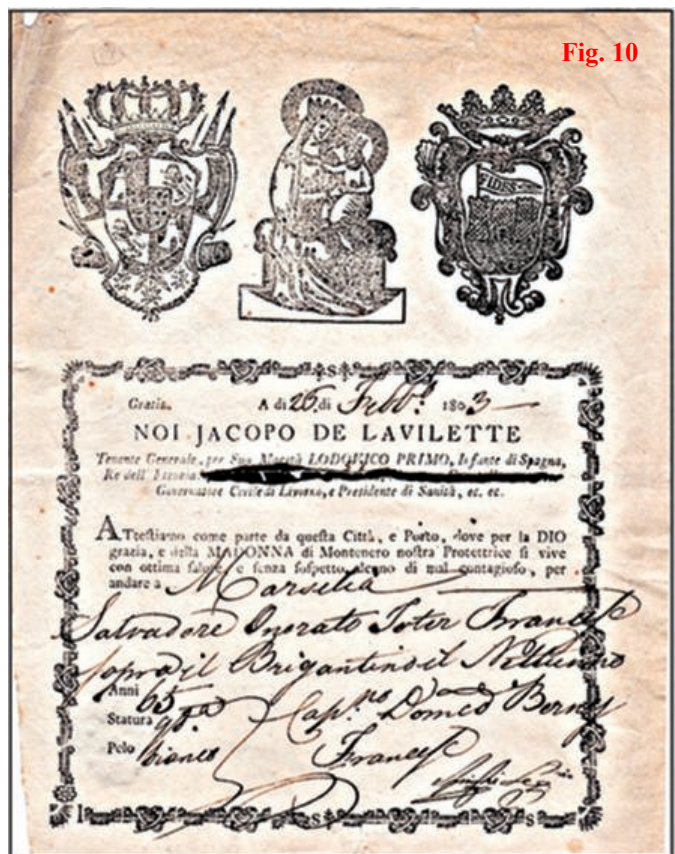 Fig. 10
FIDES
Gratis. A dì 26 di Febb.º 1803
NOI JACOPO DE LAVILETTE
Tenente Generale, per Sua Maestà LODOVICO PRIMO, Infante di Spagna,
Re dell' Etruria
Governatore Civile di Livorno, e Presidente di Sanità, et. et.
ATtestiamo come parte da questa Città, e Porto, dove per la DIO
grazia, e della MADONNA di Montenero nostra Protettrice si vive
con ottima salute, e senza sospetto alcuno di mal contagioso, per
andare a Marsilia
Salvadore Onorato Francese
sopra il Brigantino il Nettunno
Anni 65 Cap.no Domco
Statura
Pelo bianco Francese